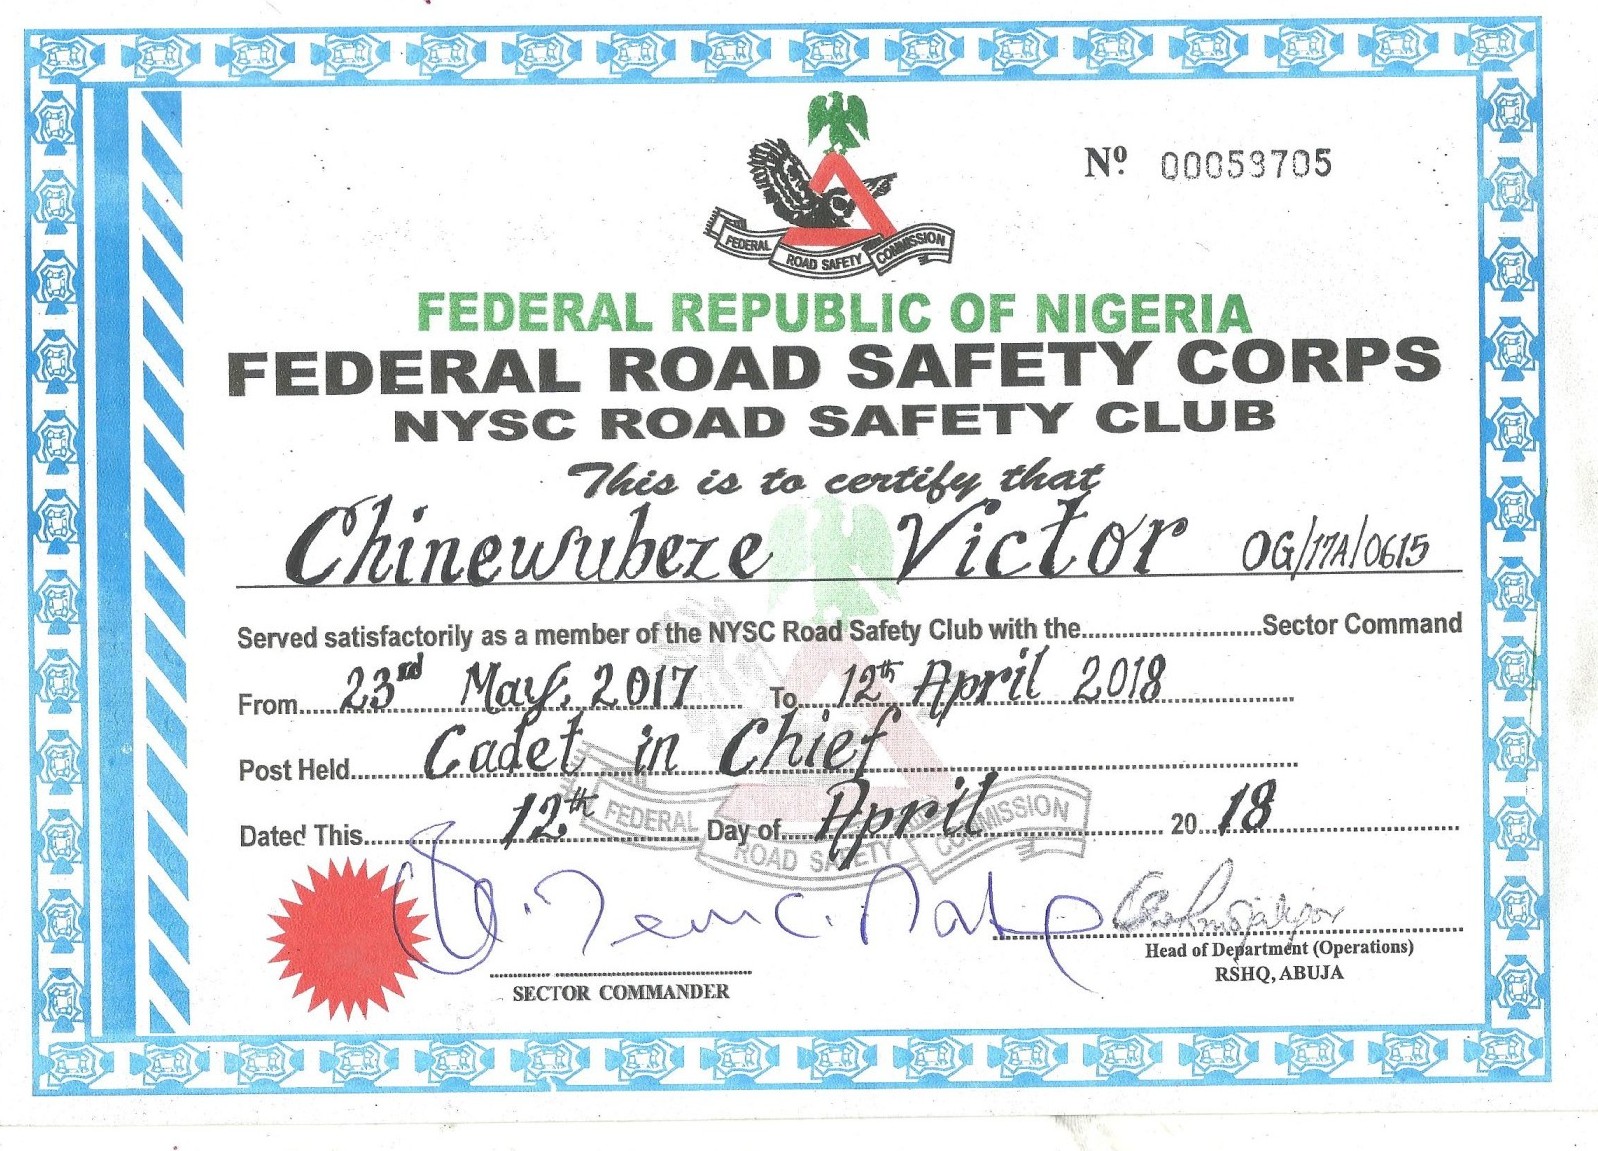 FEDERAL ROAD SAFETY COMMISSION
Nº 00053705
FEDERAL REPUBLIC OF NIGERIA
FEDERAL ROAD SAFETY CORPS
NYSC ROAD SAFETY CLUB
This is to certify that
Chinewubeze Victor OG/17A/0615
Served satisfactorily as a member of the NYSC Road Safety Club with the..............................Sector Command
From......23rd May, 2017 To......12th April 2018
Post Held......Cadet in Chief
Dated This......12th Day of......April 20..18
FEDERAL ROAD SAFETY COMMISSION
SECTOR COMMANDER
Head of Department (Operations)
RSHQ, ABUJA